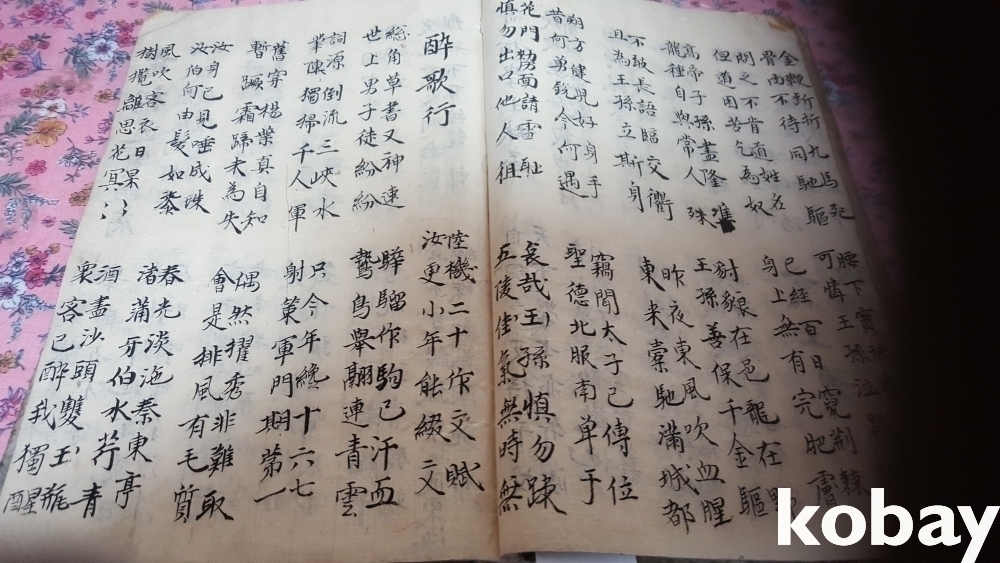 金鞭斷折九馬死
骨肉不待同馳驅
腰下寶
可憐王孫泣
問之不肯道姓名
但道困苦乞為奴
已經百日竄荊棘
身上無有完肥膚
高帝子孫盡隆準
龍種自與常人殊
豺狼在邑龍在野
王孫善保千金驅
不敢長語臨交衢
且為王孫立斯身
昨夜東風吹血腥
東来橐馳滿城都
朔方健兒好身手
昔何勇銳今何遇
竊聞太子已傳位
聖德北服南单于
花門剺面請雪恥
慎勿出口他人徂
哀哉王孫慎勿踈
五陵佳氣無時無
醉歌行
陸機二十作文賦
汝更小年能綴文
総角草書又神速
世上男子徒紛紛
驊騮作駒已汗血
鷙鳥舉翮連青雲
詞源倒流三峽水
筆陣獨掃千人軍
只今年纔十六七
射策軍門期第一
舊穿楊葉真自知
暫蹶霜蹄未為失
偶然擢秀非難取
會是排風有毛質
汝身已見唾成珠
汝伯何由髮如漆
春光淡沲秦東亭
渚蒲牙伯水荇青
風吹客衣日杲
樹攪離思花冥〻
酒盡沙頭雙玉瓶
衆客已醉我獨醒
kobay